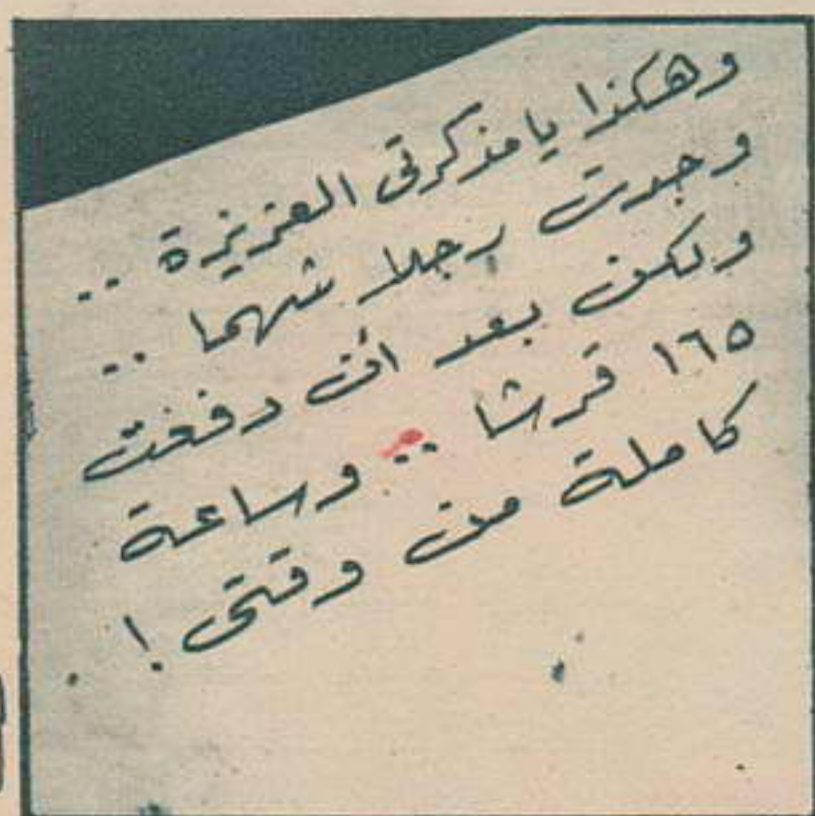 وهكذا يا مذكرتى العزيزة ..
وجدت رجلا شهما ..
ولكن بعد أن دفعت
١٦٥ قرشا .. وساعة
كاملة من وقتى !